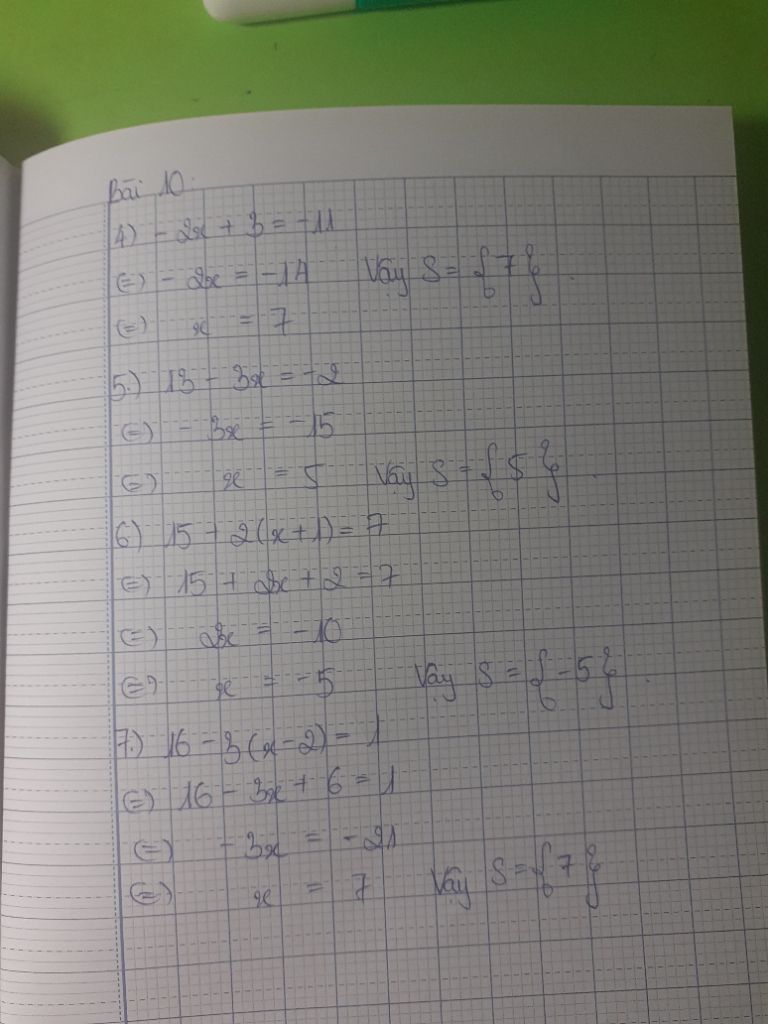 Bài 10:
4) - 2x + 3 = -11
(=) - 2x = -14 Vậy S = {7}.
(=) x = 7
5.) 13 - 3x = -2
(=) - 3x = -15
(=) x = 5 Vậy S = {5}.
6) 15 + 2(x+1) = 7
(=) 15 + 2x + 2 = 7
(=) 2x = -10
(=) x = -5 Vậy S = {-5}.
7.) 16 - 3(x-2) = 1
(=) 16 - 3x + 6 = 1
(=) - 3x = -21
(=) x = 7 Vậy S = {7}